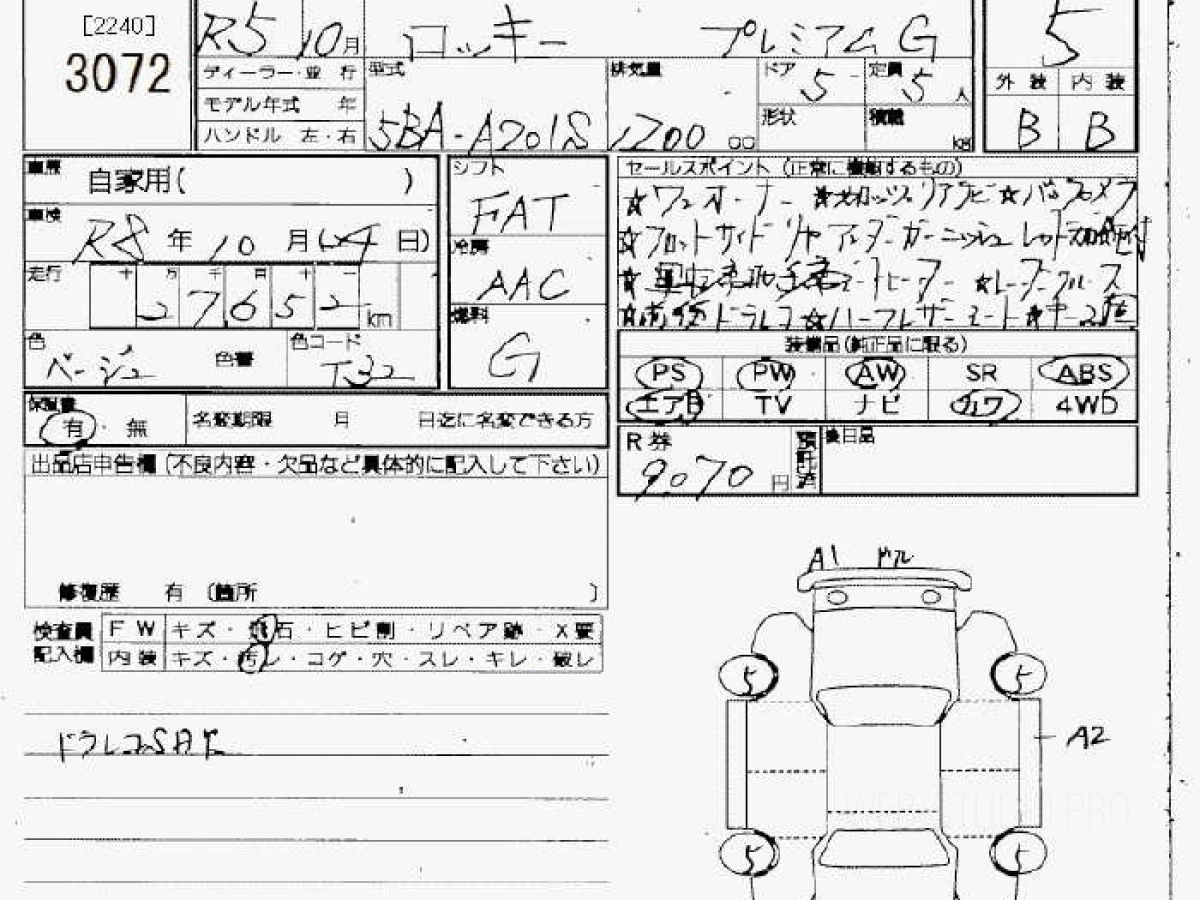 [2240]
3072
R5 10月 ロッキー プレミアムG 5
ディーラー・並行 型式 排気量 ドア 5 定員 5人
モデル年式 年 形状 積載 kg
ハンドル 左・右 5BA-A201S 1200 cc
外装 内装
B B
車歴 自家用( )
車検 R8年10月( 日)
走行 十 万 千 百 十 一
27652 km
色 ベージュ 色替 色コード T32
シフト FAT
冷房 AAC
燃料 G
セールスポイント (正常に機能するもの)
☆ワンオーナー ☆ ☆バックカメラ
☆フロントサイドリヤアンダーガーニッシュ
☆ シートヒーター ☆レーダークルーズ
☆ ドラレコ☆ハーフレザーシート☆キー2
装備品(純正品に限る)
PS PW AW SR ABS
エアB TV ナビ カワ 4WD
保証書 有・無 名変期限 月 日迄に名変できる方
R券 9.070円 預託済 後日品
出品店申告欄(不良内容・欠品など具体的に記入して下さい)
修復歴 有 〔箇所 〕
検査員記入欄
FW キズ・飛石・ヒビ割・リペア跡・X要
内装 キズ・汚レ・コゲ・穴・スレ・キレ・破レ
ドラレコSAK
A1
5 5
A2
5 5
WEB STUDIO PRO